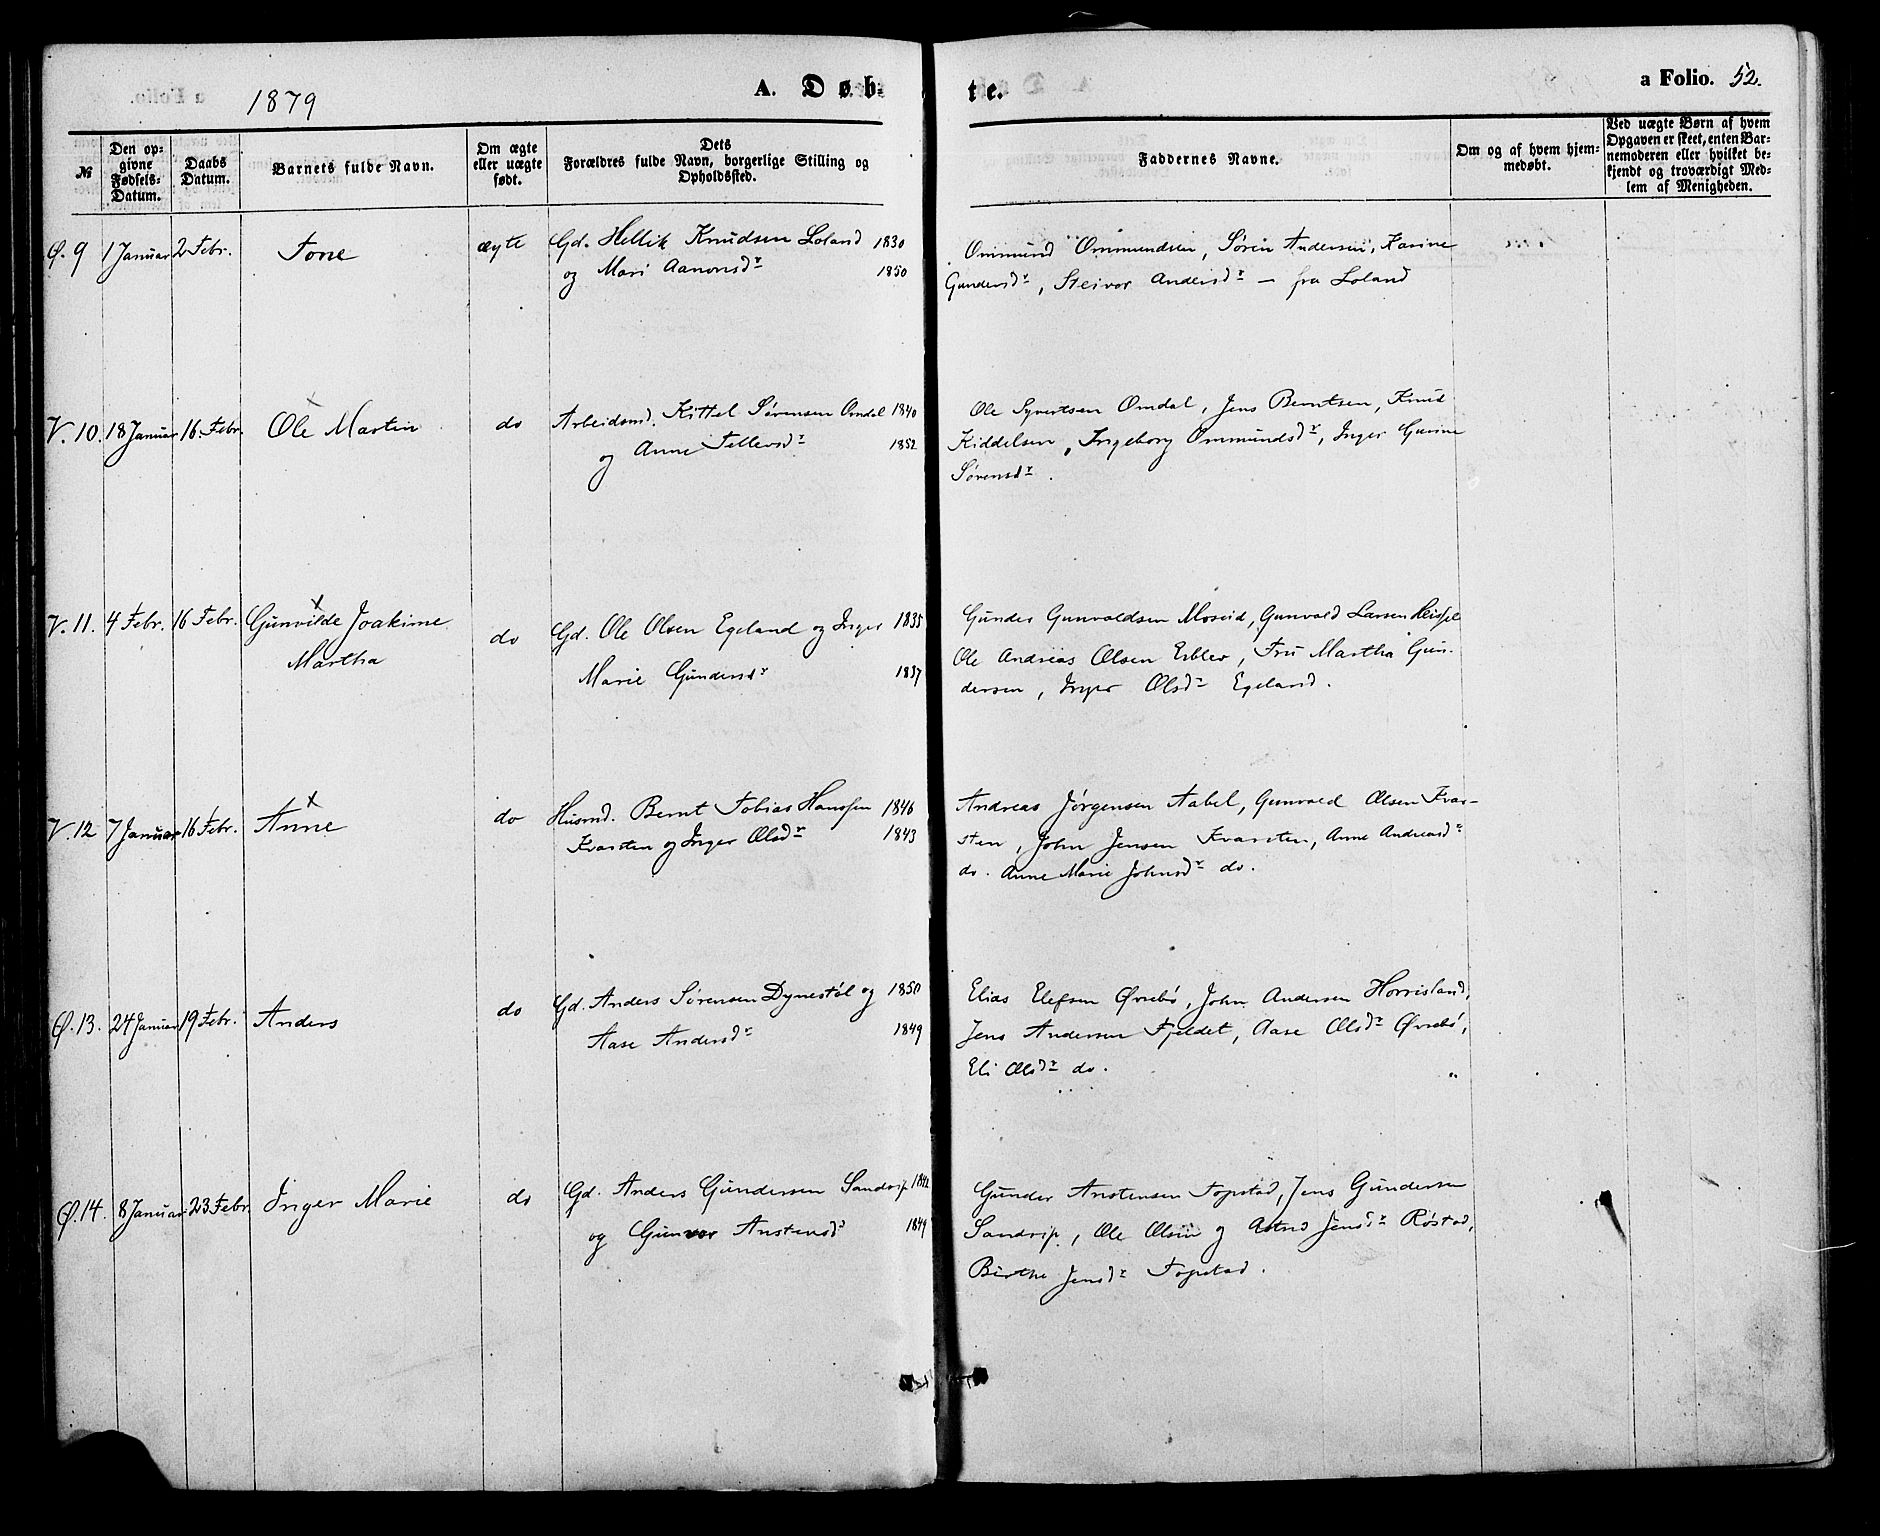 1879
A. Døbte.
a Folio. 52.
№
Den opgivne Fødsels-Datum.
Daabs Datum.
Barnets fulde Navn.
Om ægte eller uægte født.
Dets Forældres fulde Navn, borgerlige Stilling og Opholdssted.
Faddernes Navne.
Om og af hvem hjemmedøbt.
Ved uægte Børn af hvem Opgaven er skeet, enten Barnemoderen eller hvilket bekjendt og troværdigt Medlem af Menigheden.
Ø. 9 1 Januar 2 Febr. Tone ægte Gd. Hellik Knudsen Loland 1830
og Mari Aanonsdr 1850
Ommund Ommundsen, Søren Andersen, Karine
Gundersdr, Steivor Andersdr — fra Loland
V. 10. 18 Januar 16. Febr. Ole Martin do Arbeidsmd. Kittel Sørensen Omdal 1840
og Anne Tellevsdr 1852
Ole Syvertsen Omdal, Jens Berntsen, Knud
Kiddelsen, Ingeborg Ommundsdr, Inger Gurine
Sørensdr.
V. 11. 4 Febr. 16 Febr. Gunvilde Joakime
Martha
do Gd. Ole Olsen Egeland og Inger 1835
Marie Gundersdr 1837
Gunder Gunvaldsen Moseid, Gunvald Larsen
Ole Andreas Olsen, Fru Martha Gun-
dersen, Inger Olsdr Egeland.
V. 12 7 Januar 16 Febr. Anne do Husmd. Bernt Tobias Hanssen 1846
Kvarsten og Inger Olsdr 1843
Andreas Jørgensen Aabel, Gunvald Olsen Kvar-
sten, John Jensen Kvarsten, Anne Andreasdr
do. Anne Marie Johnsdr do.
Ø. 13. 24 Januar 19 Febr. Anders do Gd. Anders Sørensen Dynestøl og 1850
Aase Andersdr 1849
Elias Elefsen Øvrebø, John Andersen Horrisland,
Jens Andersen Fjeldet, Aase Olsdr Øvrebø,
Eli Olsdr do.
Ø. 14. 8 Januar 23 Febr. Inger Marie do Gd. Anders Gundersen Sandrip 1842
og Gunvor Anstensdr 1849
Gunder Anstensen Topstad, Jens Gundersen
Sandrip, Ole Olsen og Astrid Jensdr Røstad,
Birthe Jensdr Topstad.